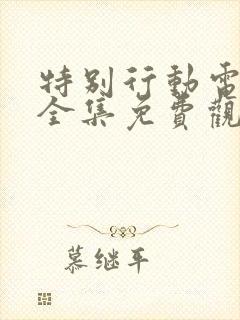 特别行動電
全集免費觀
慕继平